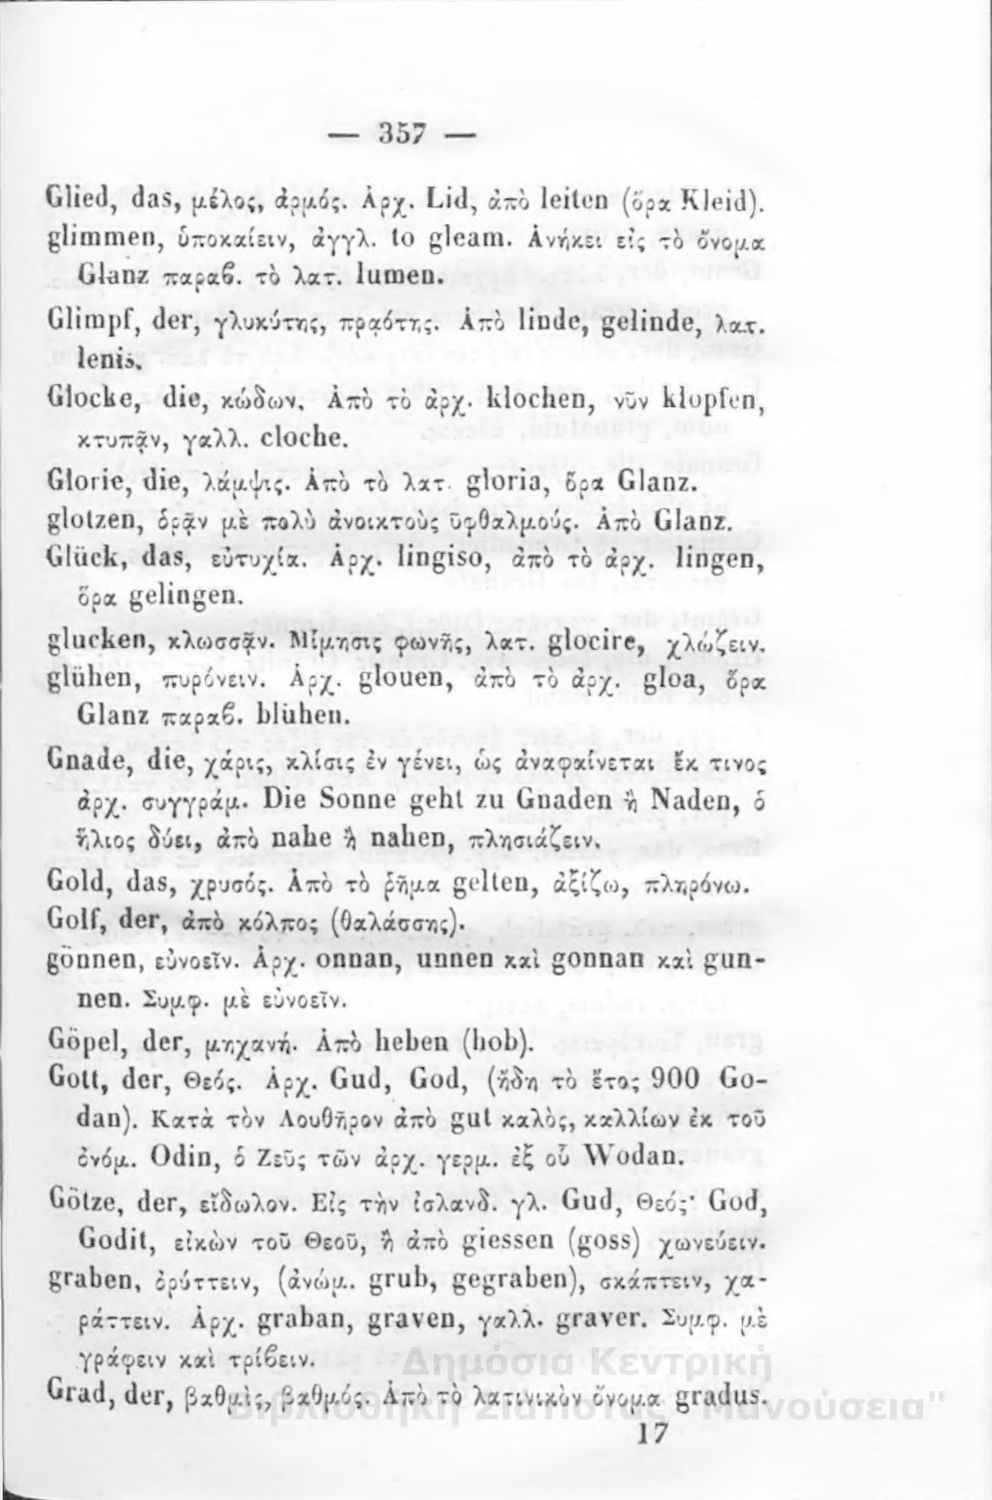 — 357 —
Glied, das, μέλος, ἁρμός. Ἀρχ. Lid, ἀπὸ leiten (ὅρα Kleid).
glimmen, ὑποκαίειν, ἀγγλ. to gleam. Ἀνήκει εἰς τὸ ὄνομα
Glanz παραβ. τὸ λατ. lumen.
Glimpf, der, γλυκύτης, πρᾳότης. Ἀπὸ linde, gelinde, λατ.
lenis.
Glocke, die, κώδων. Ἀπὸ τὸ ἀρχ. klochen, νῦν klopfen,
κτυπᾷν, γαλλ. cloche.
Glorie, die, λάμψις. Ἀπὸ τὸ λατ. gloria, ὅρα Glanz.
glotzen, ὁρᾷν μὲ πολὺ ἀνοικτοὺς ὀφθαλμούς. Ἀπὸ Glanz.
Glück, das, εὐτυχία. Ἀρχ. lingiso, ἀπὸ τὸ ἀρχ. lingen,
ὅρα gelingen.
glucken, κλωσσᾷν. Μίμησις φωνῆς, λατ. glocire, χλώζειν.
glühen, πυρόνειν. Ἀρχ. glouen, ἀπὸ τὸ ἀρχ. gloa, ὅρα
Glanz παραβ. blühen.
Gnade, die, χάρις, κλίσις ἐν γένει, ὡς ἀναφαίνεται ἔκ τινος
ἀρχ. συγγράμ. Die Sonne geht zu Gnaden ἢ Naden, ὁ
ἥλιος δύει, ἀπὸ nahe ἢ nahen, πλησιάζειν.
Gold, das, χρυσός. Ἀπὸ τὸ ῥῆμα gelten, ἀξίζω, πληρόνω.
Golf, der, ἀπὸ κόλπος (θαλάσσης).
gönnen, εὐνοεῖν. Ἀρχ. onnan, unnen καὶ gonnan καὶ gun-
nen. Συμφ. μὲ εὐνοεῖν.
Göpel, der, μηχανή. Ἀπὸ heben (hob).
Gott, der, Θεός. Ἀρχ. Gud, God, (ἤδη τὸ ἔτος 900 Go-
dan). Κατὰ τὸν Λουθῆρον ἀπὸ gut καλὸς, καλλίων ἐκ τοῦ
ὀνόμ. Odin, ὁ Ζεῦς τῶν ἀρχ. γερμ. ἐξ οὗ Wodan.
Götze, der, εἴδωλον. Εἰς τὴν ἰσλανδ. γλ. Gud, Θεός· God,
Godit, εἰκὼν τοῦ Θεοῦ, ἢ ἀπὸ giessen (goss) χωνεύειν.
graben, ὀρύττειν, (ἀνώμ. grub, gegraben), σκάπτειν, χα-
ράττειν. Ἀρχ. graban, graven, γαλλ. graver. Συμφ. μὲ
γράφειν καὶ τρίβειν.
Grad, der, βαθμὶς, βαθμός. Ἀπὸ τὸ λατινικὸν ὄνομα gradus.
17
Δημόσια Κεντρική
Βιβλιοθήκη Σιάτιστας "Μανούσεια"